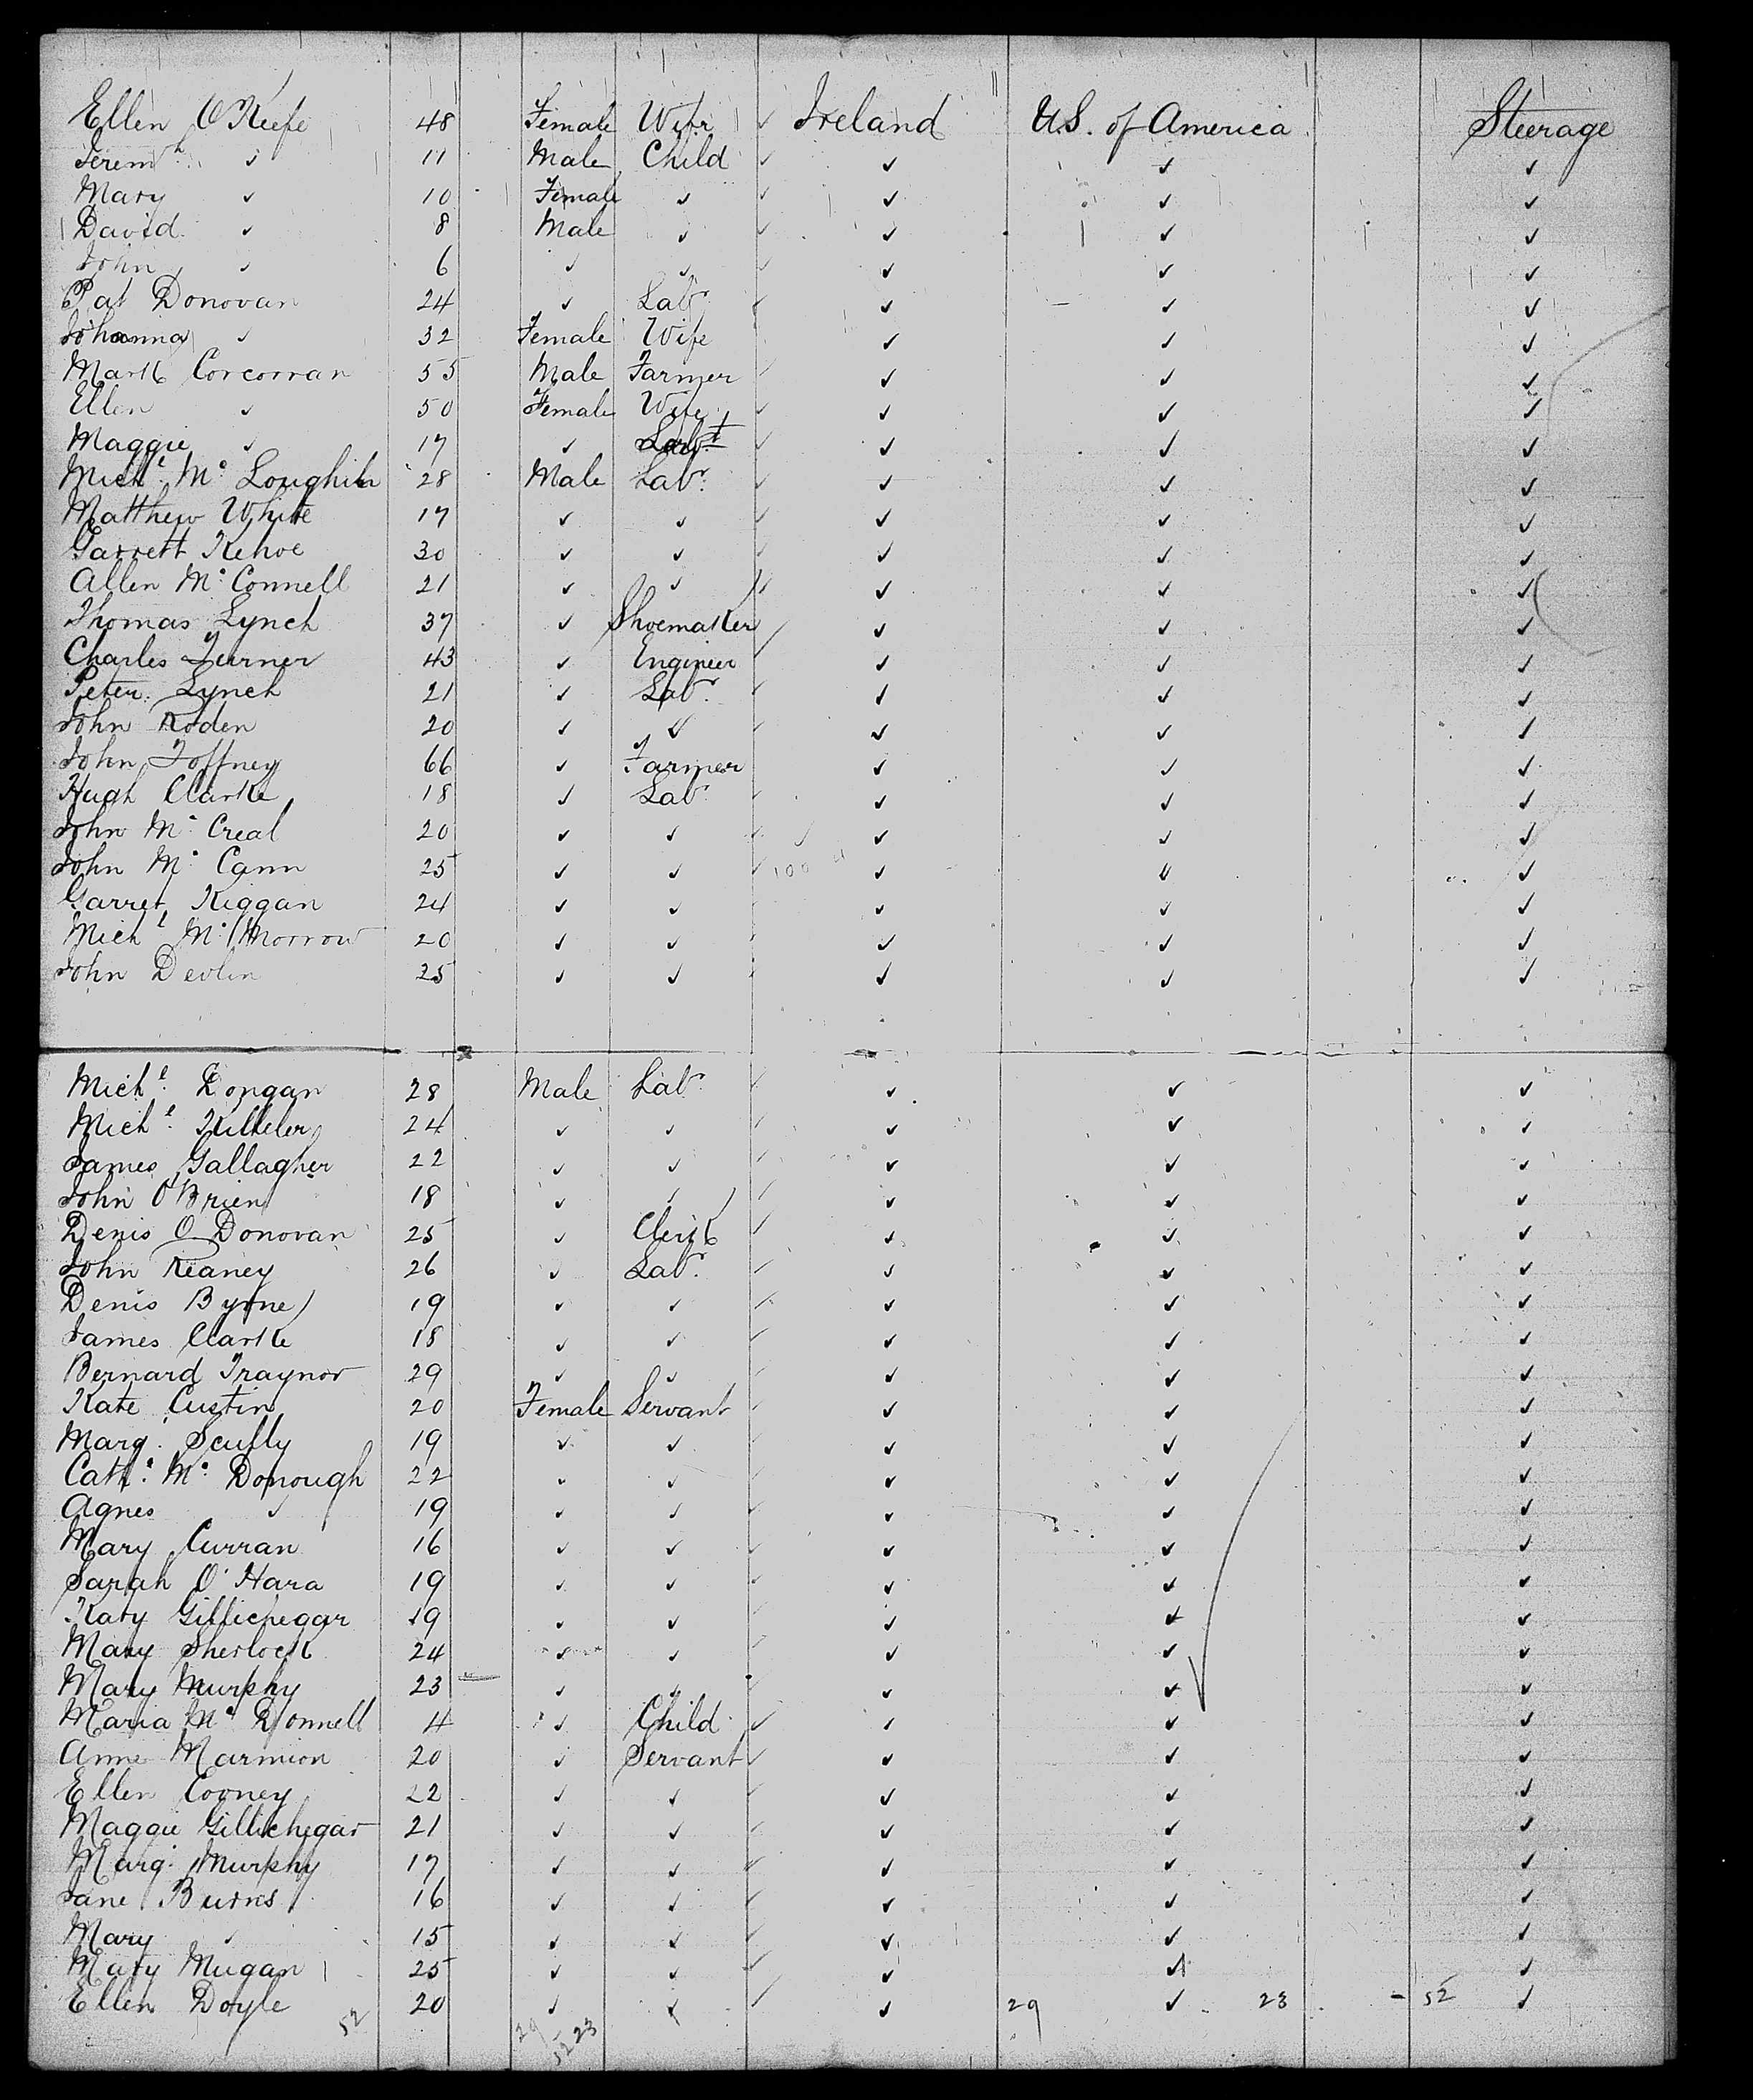 Ellen O'Keefe 48 Female Wife ✓ Ireland U.S. of America Steerage
Jeremh ✓ 11 Male Child ✓ ✓ ✓ ✓
Mary ✓ 10 Female ✓ ✓ ✓ ✓ ✓
David ✓ 8 Male ✓ ✓ ✓ ✓ ✓
John ✓ 6 ✓ ✓ ✓ ✓ ✓ ✓
Pat Donovan 24 ✓ Labr ✓ ✓ ✓ ✓
Johanna ✓ 32 Female Wife ✓ ✓ ✓
Mark Corcorran 55 Male Farmer ✓ ✓ ✓ ✓
Ellen ✓ 50 Female Wife ✓ ✓ ✓ ✓
Maggie ✓ 17 ✓ ✓ ✓ ✓ ✓
Michl Mc Loughlin 28 Male Labr ✓ ✓ ✓ ✓
Matthew White 17 ✓ ✓ ✓ ✓ ✓ ✓
Garrett Kehoe 30 ✓ ✓ ✓ ✓ ✓ ✓
Allen Mc Connell 21 ✓ ✓ ✓ ✓ ✓ ✓
Thomas Lynch 37 ✓ Shoemaker ✓ ✓ ✓ ✓
Charles Turner 43 ✓ Engineer ✓ ✓ ✓ ✓
Peter Lynch 21 ✓ Labr ✓ ✓ ✓ ✓
John Roden 20 ✓ ✓ ✓ ✓ ✓ ✓
John Toffney 66 ✓ Farmer ✓ ✓ ✓
Hugh Clarke 18 ✓ Labr ✓ ✓ ✓ ✓
John Mc Creal 20 ✓ ✓ ✓ ✓ ✓ ✓
John Mc Cann 25 ✓ ✓ ✓ 100 ✓ ✓ ✓
Garret Kiggan 24 ✓ ✓ ✓ ✓ ✓
Michl Mc Morrow 20 ✓ ✓ ✓ ✓ ✓
John Devlin 25 ✓ ✓ ✓ ✓ ✓
Michl Dongan 28 Male Labr ✓ ✓ ✓ ✓
Michl 24 ✓ ✓ ✓ ✓ ✓ ✓
James Gallagher 22 ✓ ✓ ✓ ✓ ✓ ✓
John O'Brien 18 ✓ ✓ ✓ ✓ ✓ ✓
Denis O Donovan 25 ✓ Clerk ✓ ✓ ✓ ✓
John Reaney 26 ✓ Labr ✓ ✓ ✓ ✓
Denis Byrne 19 ✓ ✓ ✓ ✓ ✓ ✓
James Clarke 18 ✓ ✓ ✓ ✓ ✓ ✓
Bernard Traynor 29 ✓ ✓ ✓ ✓ ✓ ✓
Kate Custin 20 Female Servant ✓ ✓ ✓ ✓
Marg. Scully 19 ✓ ✓ ✓ ✓ ✓
Cathe Mc Donough 22 ✓ ✓ ✓ ✓ ✓ ✓
Agnes ✓ 19 ✓ ✓ ✓ ✓ ✓ ✓
Mary Curran 16 ✓ ✓ ✓ ✓ ✓ ✓
Sarah O'Hara 19 ✓ ✓ ✓ ✓ ✓ ✓
Katy Gillichegar 19 ✓ ✓ ✓ ✓ ✓ ✓
Mary Sherlock 24 ✓ ✓ ✓ ✓ ✓ ✓
Mary Murphy 23 ✓ ✓ ✓ ✓ ✓
Maria Mc Donnell 4 ✓ Child ✓ ✓ ✓ ✓
Anne Marmion 20 ✓ Servant ✓ ✓ ✓ ✓
Ellen Cooney 22 ✓ ✓ ✓ ✓ ✓ ✓
Maggie Gillichegar 21 ✓ ✓ ✓ ✓ ✓ ✓
Marg. Murphy 17 ✓ ✓ ✓ ✓ ✓ ✓
Jane Burns 16 ✓ ✓ ✓ ✓ ✓ ✓
Mary ✓ 15 ✓ ✓ ✓ ✓ ✓ ✓
Mary Mugan 25 ✓ ✓ ✓ ✓ ✓ ✓
Ellen Doyle 20 ✓ ✓ ✓ ✓ 29 ✓ 23 - 52 ✓
52 29 23
52